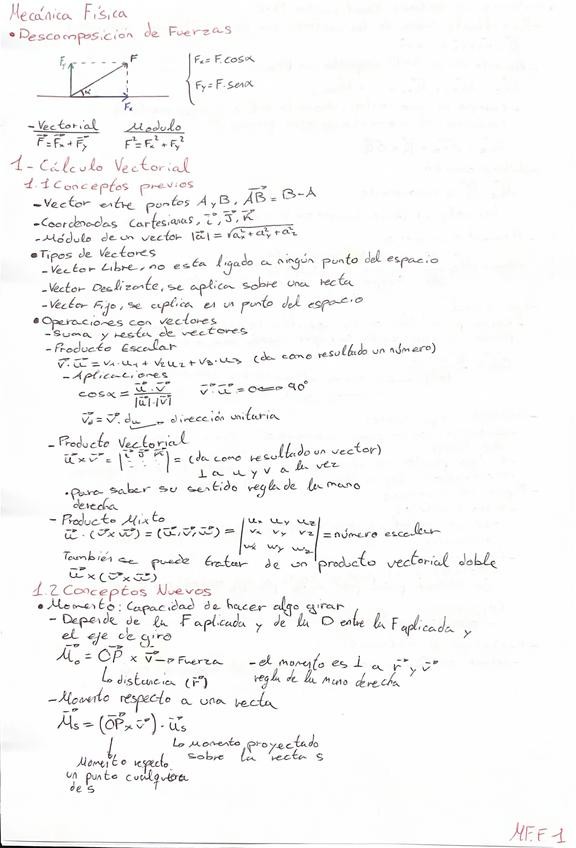 Mecánica Física
• Descomposición de Fuerzas
Fy F Fx = F·cosα
α Fy = F·senα
Fx
- Vectorial Modulo
F⃗ = F⃗x + F⃗y F² = Fx² + Fy²
1- Cálculo Vectorial
1.1 Conceptos previos
- Vector entre puntos A y B, AB⃗ = B-A
- Coordenadas Cartesianas, i⃗, J⃗, K⃗
- Módulo de un vector |a⃗| = √ax²+ay²+az²
• Tipos de Vectores
- Vector Libre, no esta ligado a ningún punto del espacio
- Vector Deslizante, se aplica sobre una recta
- Vector Fijo, se aplica en un punto del espacio
• Operaciones con vectores
- Suma y resta de vectores
- Producto Escalar
v⃗·u⃗ = v₁·u₁ + v₂u₂ + v₃·u₃ (da como resultado un número)
- Aplicaciones
cosα = u⃗·v⃗ / |u⃗|·|v⃗| v⃗·u⃗ = 0 ↔ 90°
= v⃗·du → dirección unitaria
- Producto Vectorial
u⃗ × v⃗ = |i⃗ J⃗ K⃗| = (da como resultado un vector)
⊥ a u y v a la vez
• para saber su sentido regla de la mano
derecha
- Producto Mixto
u⃗·(v⃗×w⃗) = (u⃗,v⃗,w⃗) = |ux uy uz
vx vy vz
wx wy wz| = número escalar
También se puede tratar de un producto vectorial doble
u⃗×(v⃗×w⃗)
1.2 Conceptos Nuevos
• Momento: Capacidad de hacer algo girar
- Depende de la F aplicada y de la D entre la F aplicada y
el eje de giro
M⃗o = OP⃗ × v⃗ → Fuerza - el momento es ⊥ a r⃗ y v⃗
↳ distancia (r⃗) regla de la mano derecha
- Momento respecto a una recta
M⃗s = (OP⃗ × v⃗)·u⃗s
↳ Momento proyectado
sobre la recta s
Momento respecto
un punto cualquiera
de s
M.F.F 1